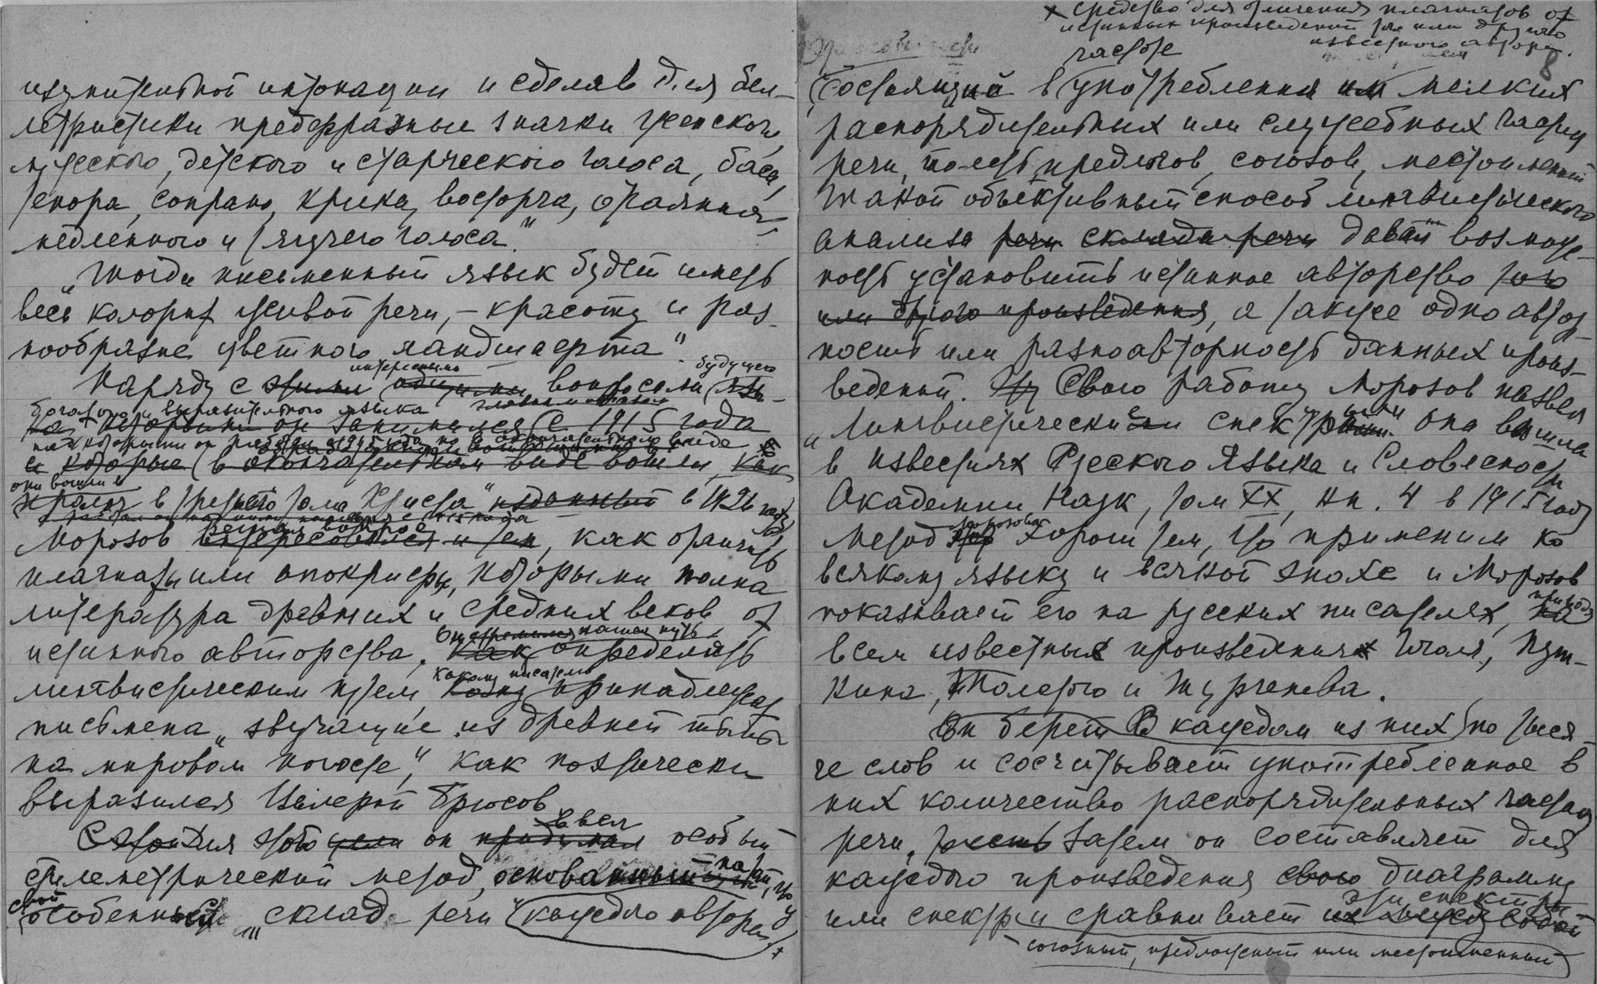 интонации и сделав для бел-
летристики предфразные значки женского,
мужского, детского и старческого голоса, баса,
тенора, сопрано, крика, восторга, отчаяния,
медленного и голоса."
"Тогда письменный язык будет иметь
весь колорит живой речи, – красоту и раз-
нообразие цветного ландшафта".
Наряду с этими интересными вопросами будущего
богатого и выразительного языка
над которыми он работал с 1915 года
они вошли в "Христа" в 1926 году
Морозов решал вопрос, как отличить
плагиаты или апокрифы, которыми полна
литература древних и средних веков от
истинного авторства. Он нашел путь определять
лингвистическим путем, какому писателю принадлежат
письмена, "звучащие из древней тьмы
на мировом погосте", как поэтически
выразился Валерий Брюсов.
Для этого он ввел особый
стилеметрический метод, основанный на том, что у
каждого автора свой особенный "склад речи"
× средство для отличения плагиатов от
истинных произведений того или другого
известного автора.
8
частое
Состоящий в употреблении мелких
распорядительных или служебных частиц
речи, то есть предлогов, союзов, местоимений
Такой объективный способ лингвистического
анализа речи склада речи дает возмож-
ность установить истинное авторство того
или другого произведения, а также одноавтор-
ность или разноавторность данных произ-
ведений. Свою работу Морозов назвал
"Лингвистические спектры" она вошла
в Известиях Русского Языка и Словесности
Академии Наук, том XX, кн. 4 в 1915 году
Метод Морозова хорош тем, что применим ко
всякому языку и всякой эпохе и Морозов
показывает его на русских писателях,
всем известных произведениях Гоголя, Пуш-
кина, Толстого и Тургенева.
Он берет в каждом из них по тыся-
че слов и сосчитывает употребленное в
них количество распорядительных частиц
речи. Затем он составляет для
каждого произведения свою диаграмму
или спектр и сравнивает эти спектры их между собой
союзный, предложный или местоименный